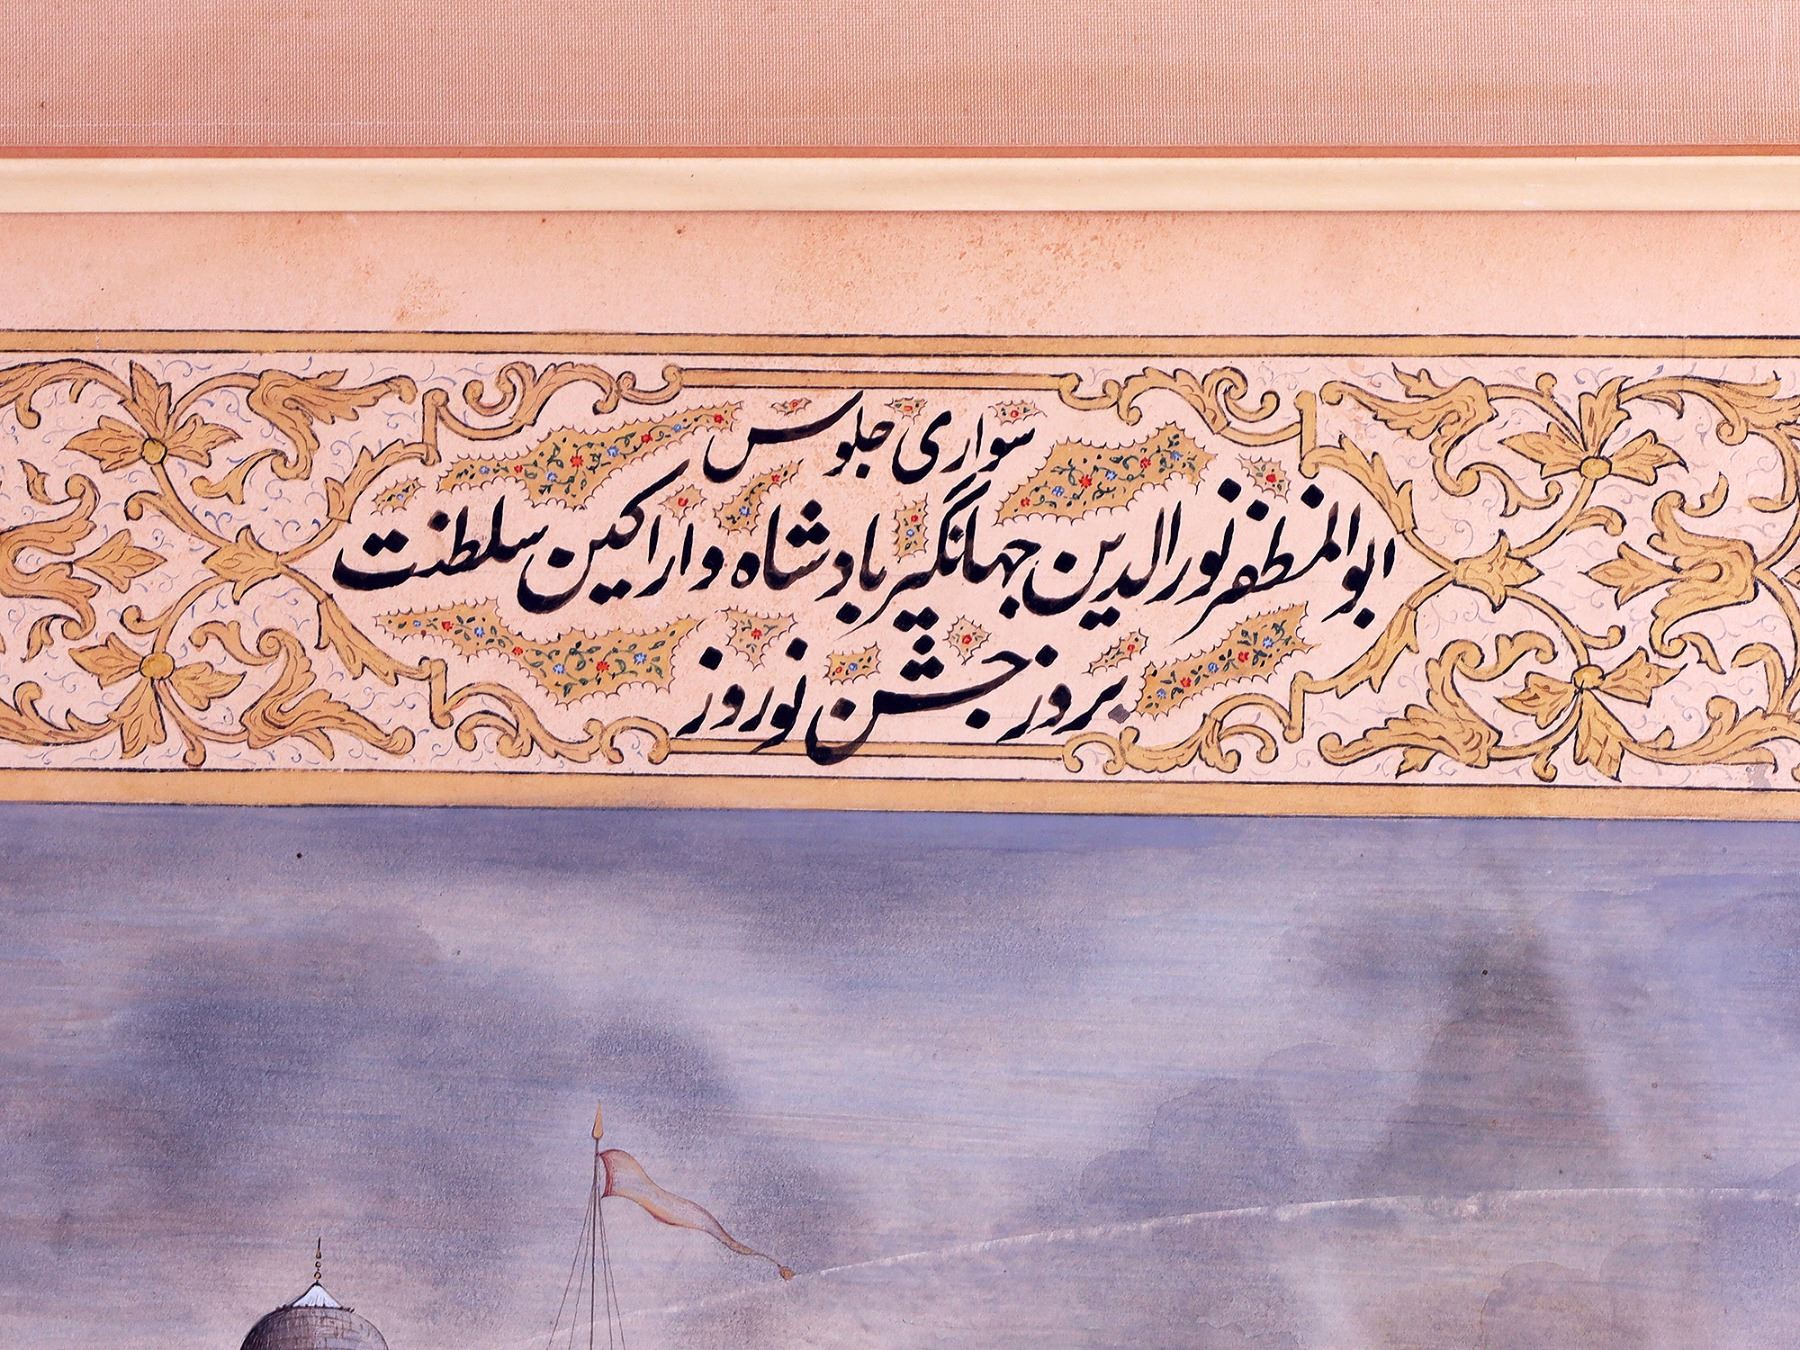 سواری جلوس
ابوالمظفر نورالدین جهانگیر بادشاه و اراکین سلطنت
بروز جشن نوروز